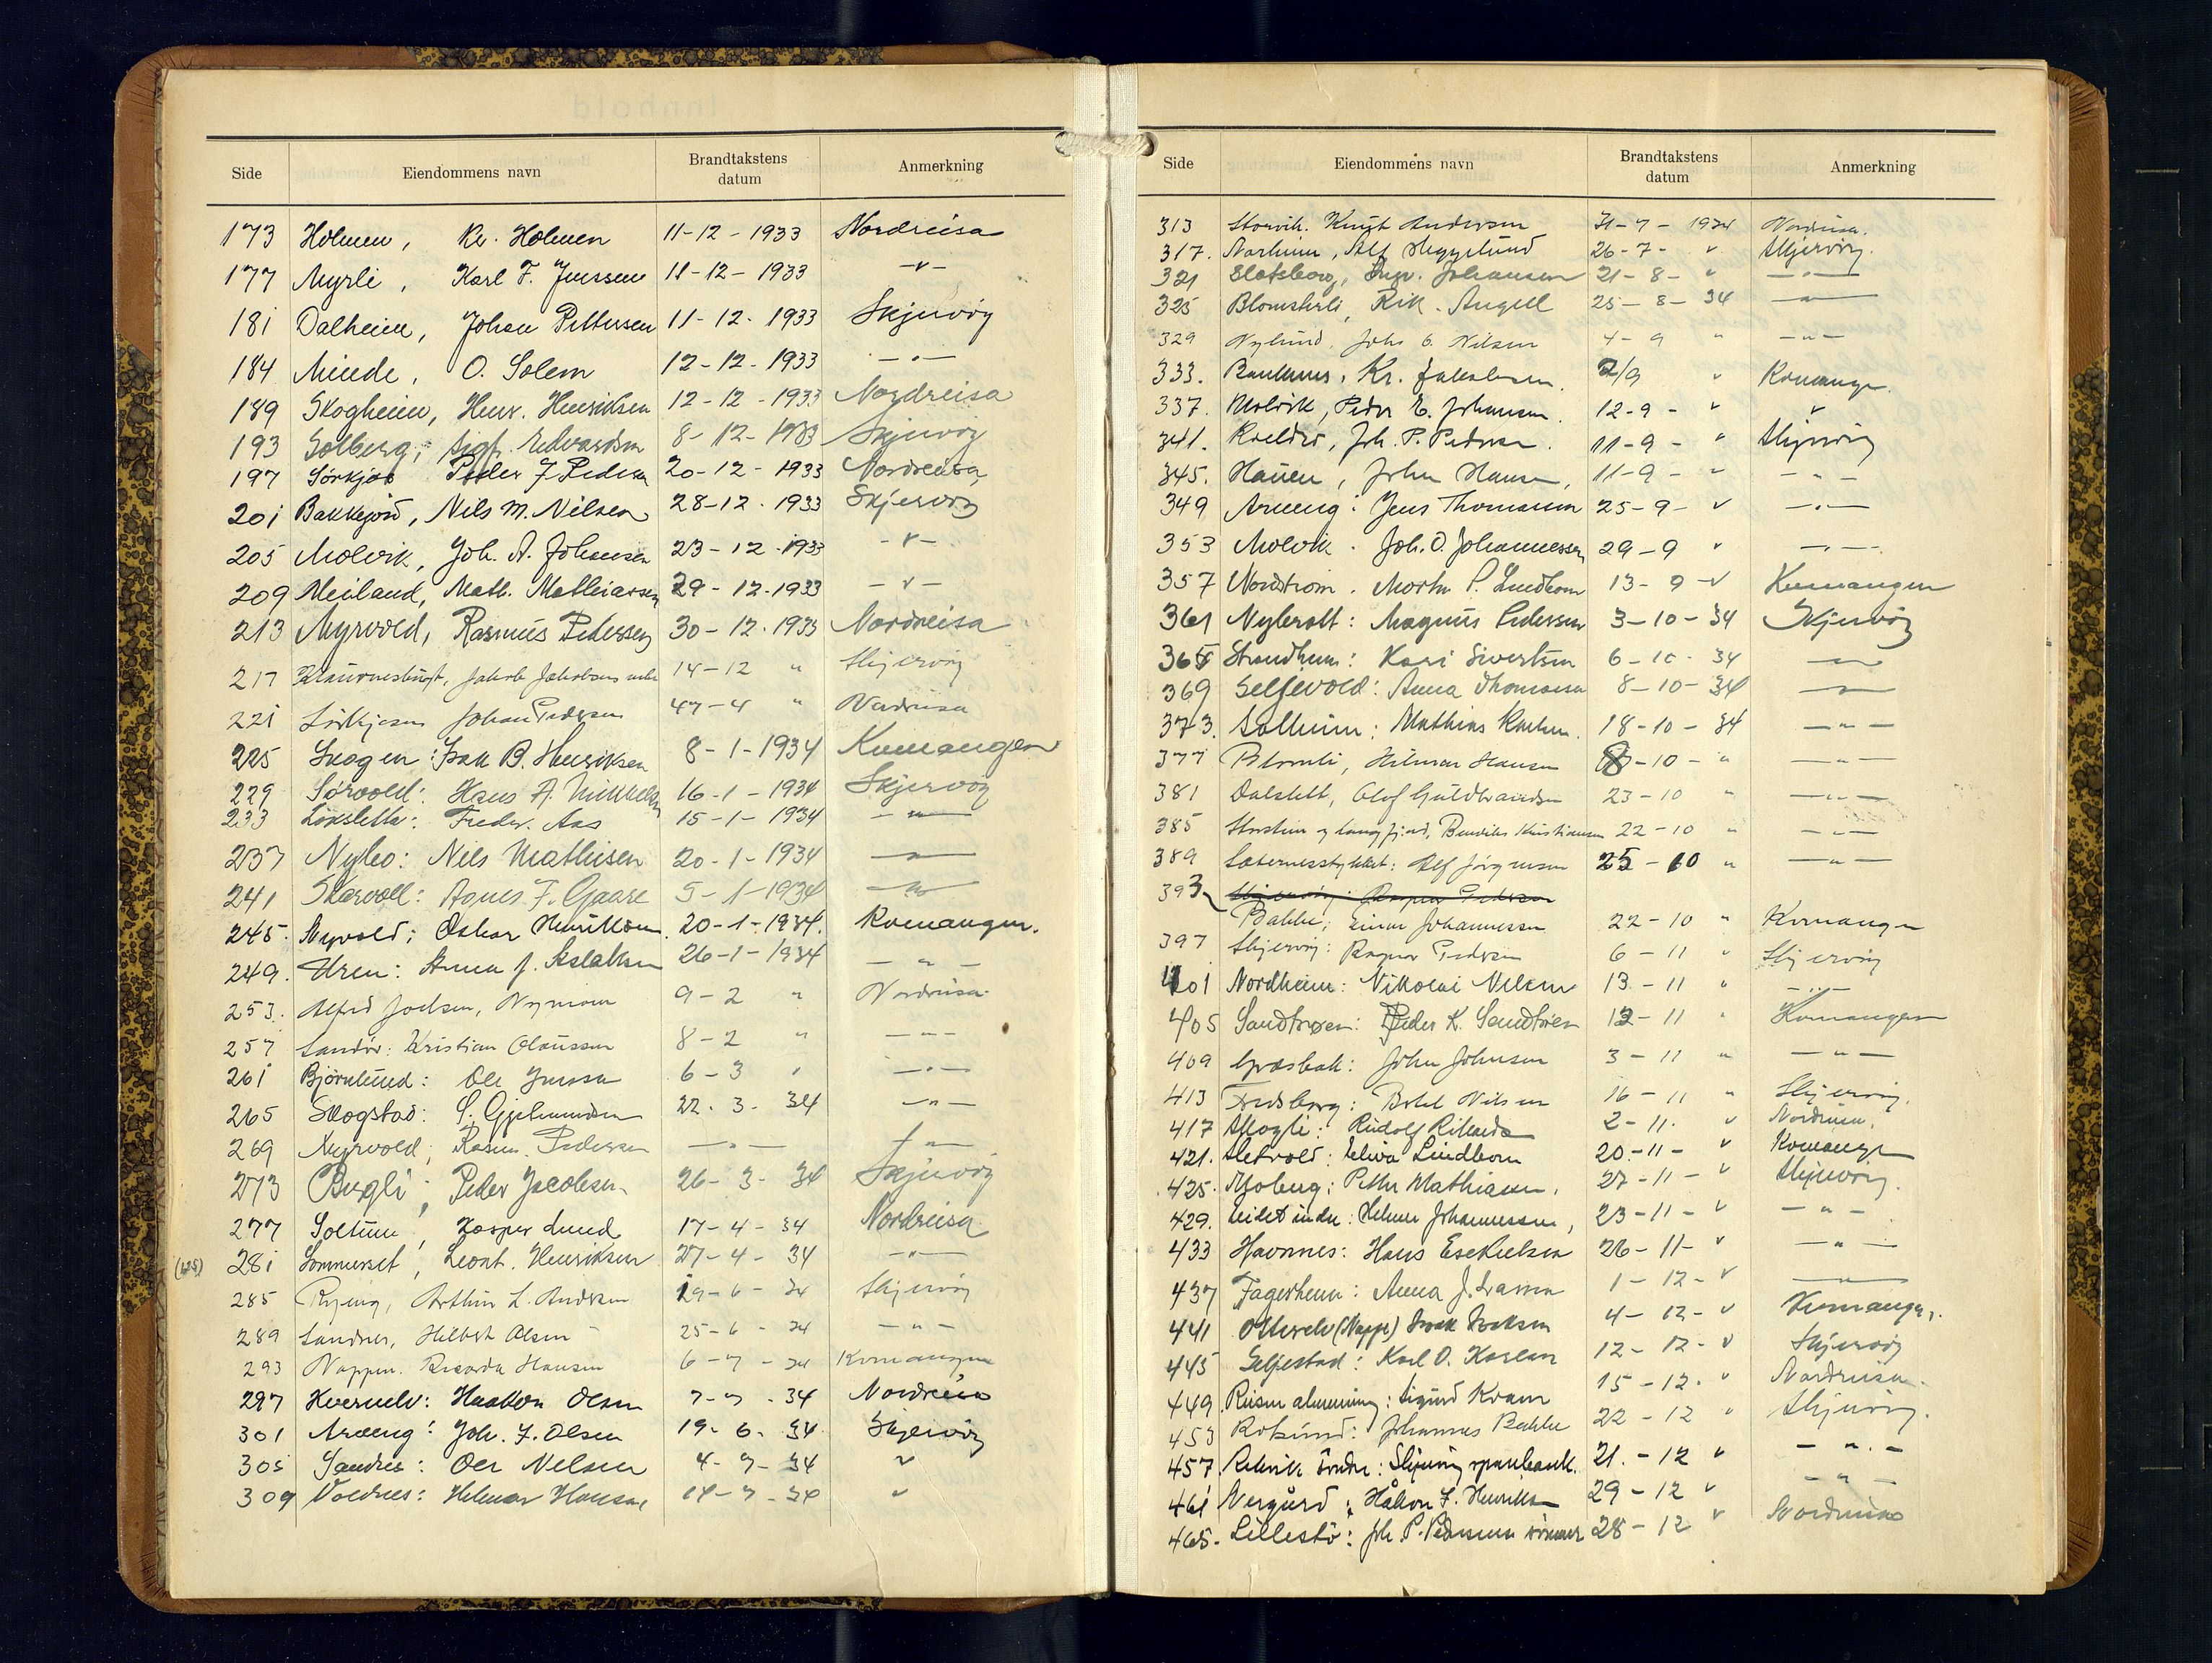 Side Eiendommens navn Brandtakstens datum Anmerkning
173 Holmen, Kr. Holmen 11-12-1933 Nordreisa
177 Myrli, Karl F. Jenssen 11-12-1933 -"-
181 Dalheim, Johan Pettersen 11-12-1933 Skjervöy
184 Minde, O. Solem 12-12-1933 -"-
189 Skogheim, Henr. Henriksen 12-12-1933 Nordreisa
193 Solberg; Sigf. Edvardsen 8-12-1933 Skjervöy
197 Sörkjos Peder J Pedersen 20-12-1933 Nordreisa
201 Bakkejord, Nils M. Nilsen 28-12-1933 Skjervöy
205 Molvik, Joh. A. Johansen 23-12-1933 -"-
209 Meiland, Math. Mathiassen 29-12-1933 -"-
213 Myrvold, Rasmus Pedersen 30-12-1933 Nordreisa
217 Jakob Jakobsens 14-12 " Skjervöy
221 Sörkjosen Johan Pedersen " Nordreisa
225 Skogen: Isak B. Henriksen 8-1-1934 Kvænangen
229 Sörvold: Hans A. Mikkelsen 16-1-1934 Skjervöy
233 Löksletta: Freder. Aas 15-1-1934 -"-
237 Nybo: Nils Mathisen 20-1-1934 -"-
241 Skarvoll: Agnes F. Gaare 5-1-1934 -"-
245. Nyvold; Oskar Henriksen. 20-1-1934. Kvænangen.
249. Uren: Anna J. Aslaksen 26-1-1934 -"-
253. Alfred Joelsen, Nymoen 9-2 " Nordreisa
257 Sandör: Kristian Olaussen 8-2 " -"-
261 Björnlund: Ole Jenssen 6-3 " -"-
265 Skogstad: S. Gjelmundsen 22-3-34 -"-
269 Myrvold; Rasm. Pedersen -"- -"-
273 Bergli; Peder Jacobsen 26-3-34 Skjervöy
277 Soltun, Kasper Lund 17-4-34 Nordreisa
(125) 281 Sommerset, Leonh. Henriksen 27-4-34 -"-
285 Ryeng, Arthur L. Andersen 29-6-34 Skjervöy
289 Sandnes, Hilbert Olsen 25-6-34 -"-
293 Nappen. Ricarda Hansen 6-7-34 Kvænangen
297 Kvernelv: Haakon Olsen 7-7-34 Nordreisa
301 Aroeng: Joh. J. Olsen 19-6-34 Skjervöy
305 Sandnes: Ole Nilsen 4-7-34 "
309 Voldnes: Helmer Hansen 14-7-34 "
Side Eiendommens navn Brandtakstens datum Anmerkning
313 Storvik. Knut Andersen 31-7-1934 Nordreisa.
317. Solheim, Alf Heggelund 26-7- " Skjervöy.
321 Slotsberg, Ingv. Johansen 21-8- " -"-
325 Blomsterli, Rik. Angell 25-8-34 -"-
329 Nylund. Johs G. Nilsen 4-9 " -"-
333. Kr. Jakobsen. 2/9 " Kvænangen.
337. Molvik, Peder E. Johansen. 12-9- " "
341. Joh. P. Pedersen. 11-9- " Skjervöy
345. Hauen, John Hansen, 11-9- " -"-
349 Aroeng: Jens Thomassen 25-9- " -"-
353 Molvik. Joh. O. Johannessen 29-9 " -"-
357 Nordstrøm. Morten P. Lindbom 13-9- " Kvænangen
361 Nybrott: Magnus Pedersen 3-10-34 Skjervöy
365 Strandheim: Kari Sivertsen 6-10-34 -"-
369 Seljevold: Anna Thomassen 8-10-34 -"-
373. Solheim; Mathias Karlsen. 18-10-34 -"-
377 Blomli, Hilmar Hansen -10- " -"-
381 Dalslett, Olof Guldbrandsen 23-10 " -"-
385 Storstein og Langfjord, Benedikt Kristiansen 22-10 " -"-
389 Alf Jörgensen 25-10 " -"-
393 Skjervöy: Ragnar Pedersen
Bakke; Einar Johannessen 22-10 " Kvænangen
397 Skjervöy: Ragnar Pedersen 6-11 " Skjervöy
401 Nordheim: Nikolai Nilsen 13-11 " -"-
405 Sandtrøen: Peder K. Sandtrøen 13-11 " Kvænangen
409 Græsbak: John Johnsen 3-11 " -"-
413 Fredsberg: Botel Nilsen 16-11 " Skjervöy.
417 Skogli: Rudolf Rikards 2-11. " Nordreisa.
421. Sletvold: Lindbom 20-11- " Kvænangen
425. Moberg; Petter Mathiassen. 27-11- " Skjervöy.
429. Eidet indre: Helmer Johannessen, 23-11- " -"-
433 Havnnes: Hans Esekielsen 26-11- " -"-
437 Fagerheim: Anna J. Larsen 1-12- " -"-
441 Otterelv (Nappe) Isak Isaksen 4-12- " Kvænangen.
445 Seljestad: Karl O. Karlsen 12-12- " Skjervöy
449. Reisen almenning: Sigurd Kvam 15-12- " Nordreisa.
453 Rotsund: Johannes Bakke 22-12 " Skjervöy.
457. Rekvik söndre: Skjervöy sparebank. 21.-12 " -"-
461 Nergård; Håkon L. Henriksen 29-12 " -"-
465. Lillestö: Joh. P. Pedersens 28-12 " Nordreisa